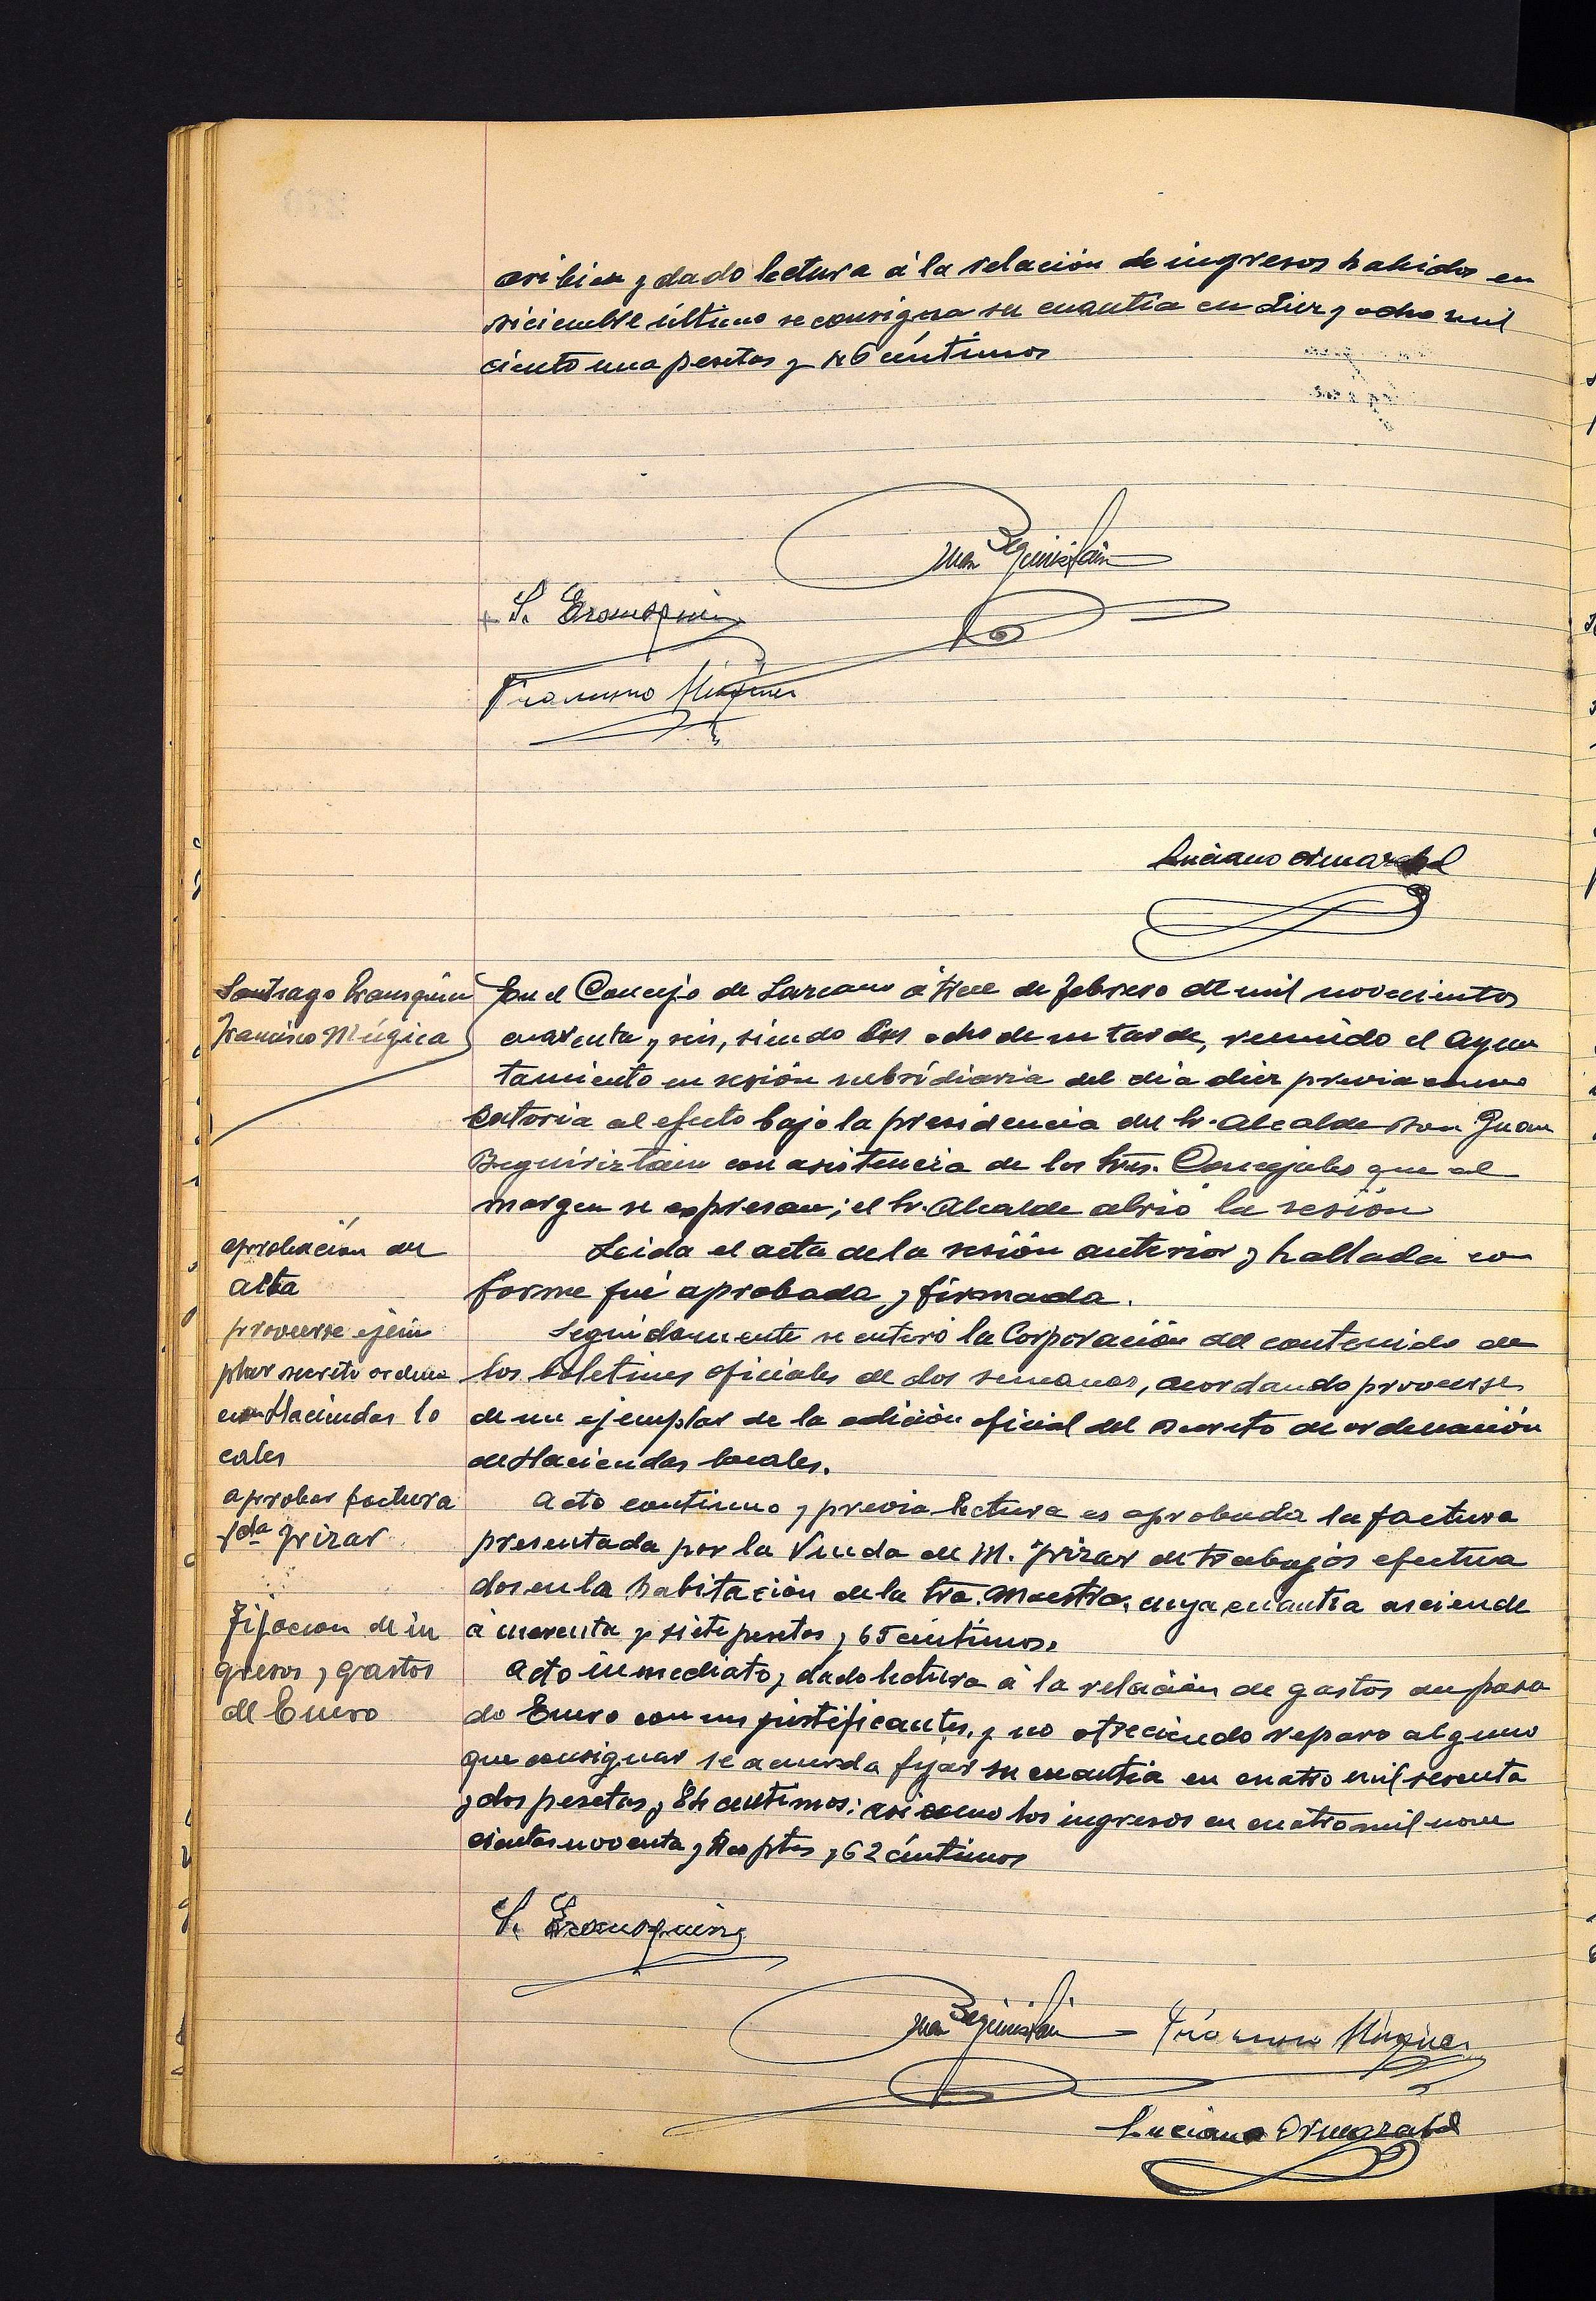 asi bien y dado lectura á la relación de ingresos habidos en
diciembre último se consigna su cuantía en Diez y ocho mil
ciento una pesetas y 46 céntimos
Juan Beguiristain
S. Erausquin
Francisco Múgica
Luciano Ormazabal
Santiago Erausquin
Francisco Múgica
En el Concejo de Lazcano á trece de febrero de mil novecientos
cuarenta y seis, siendo las ocho de su tarde, reunido el Ayun
tamiento en sesión subsidiaria del dia diez previa convo
catoria al efecto bajo la presidencia del Sr. Alcalde Don Juan
Beguiristain con asistencia de los Sres. Concejales que al
margen se expresan; el Sr. Alcalde abrió la sesión
aprobación del
acta
Leida el acta de la sesión anterior y hallada con
forme fué aprobada y firmada.
proveerse ejem
plar decreto ordena
cion Haciendas lo
cales
Seguidamente se enteró la Corporación del contenido de
los boletines oficiales de dos semanas, acordando proveerse
de un ejemplar de la edición oficial del Decreto de ordenación
de Haciendas locales.
aprobar factura
Vda Yrizar
Acto continuo y previa lectura es aprobada la factura
presentada por la Viuda de M. Yrizar de trabajos efectua
dos en la habitación de la Sra. Maestra, cuya cuantía asciende
á cuarenta y siete pesetas y 65 céntimos.
Fijacion de in
gresos y gastos
de Enero
Acto inmediato y dado lectura á la relación de gastos del pasa
do Enero con sus justificantes, y no ofreciendo reparo alguno
que consignar se acuerda fijar su cuantía en cuatro mil sesenta
y dos pesetas y 84 centimos: asi como los ingresos en cuatro mil nove
cientas noventa y tres ptas y 62 céntimos
S. Erausquin
Juan Beguiristain
Francisco Múgica
Luciano Ormazabal